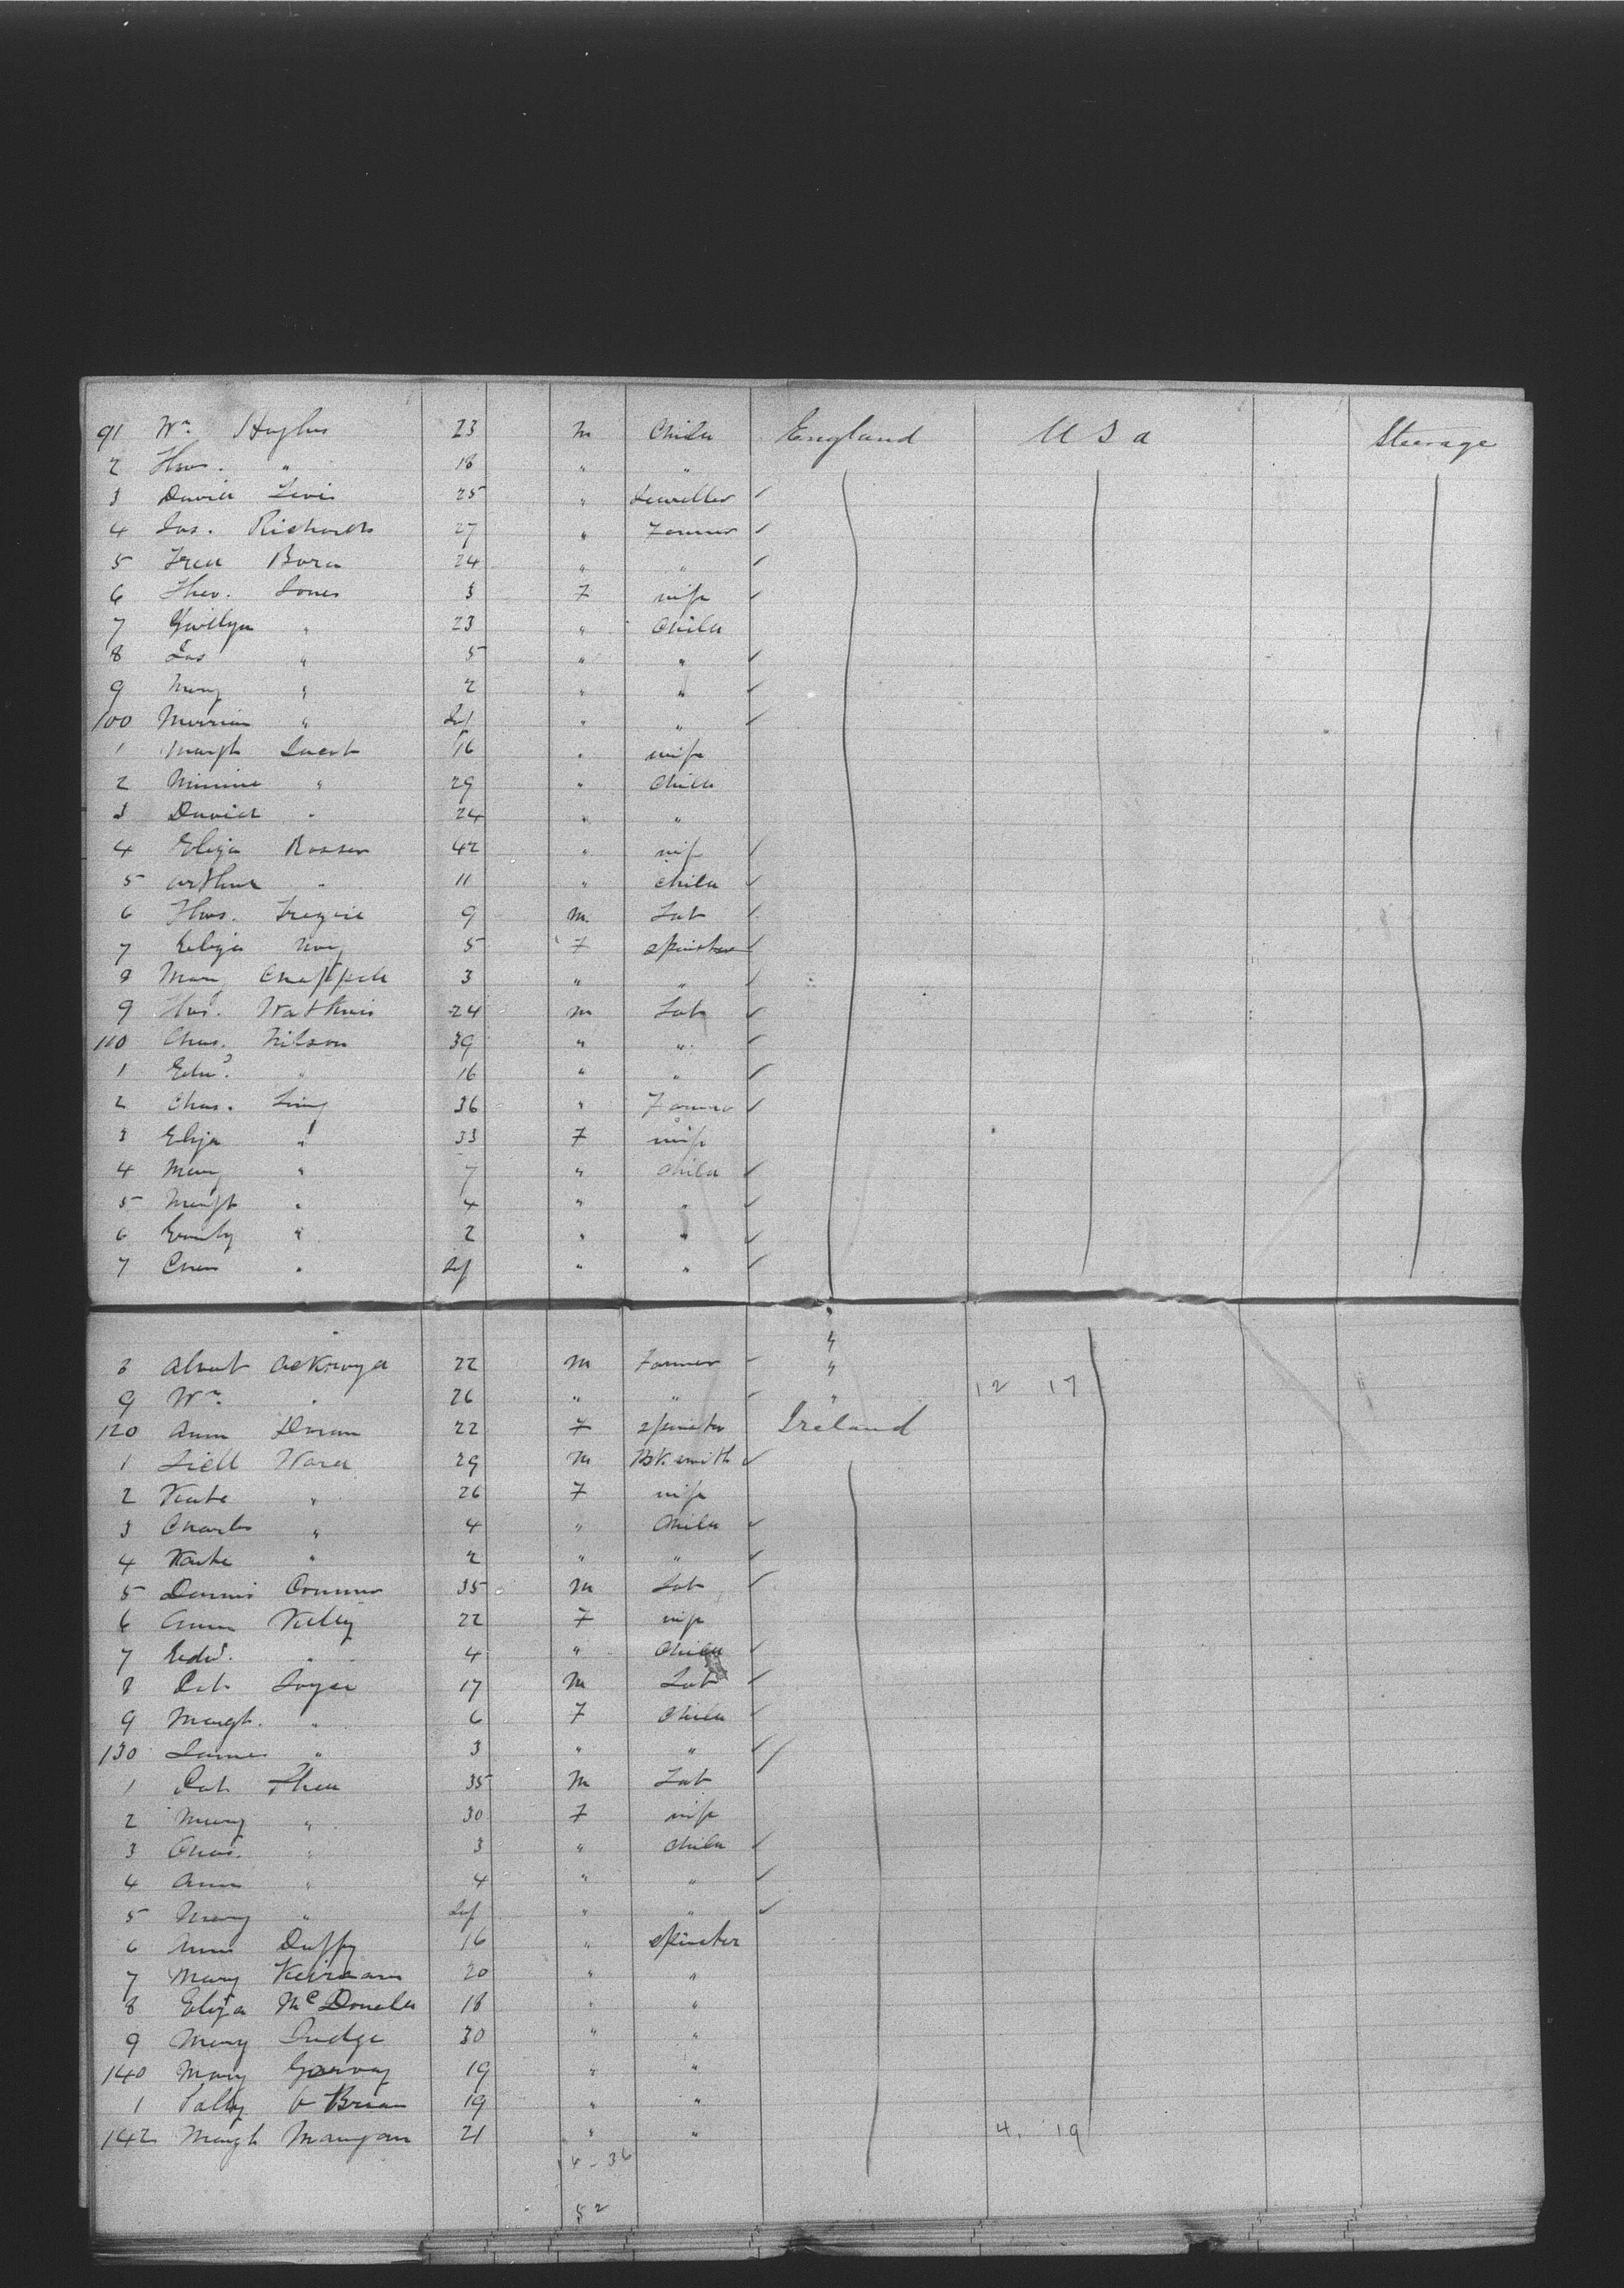 91 Wm Hughes 23 m Child England U S a Steerage
2 Thos. " 18 " "
3 David Levis 25 " Jeweller ✓
4 Jas. Richards 27 " Farmer ✓
5 Fred Born 24 " " ✓
6 Theo. Jones 3 F wife ✓
7 Gwillym " 23 " Child
8 Jas " 5 " " ✓
9 Mary " 2 " " ✓
100 Mirriam " Inf " " ✓
1 Margt 16 " wife
2 Minnie " 29 " Child
3 David " 24 " "
4 Eliza Rosser 42 " wif ✓
5 arthur " 11 " child ✓
6 Thos. 9 m. Lab ✓
7 Eliza 5 F spinster ✓
8 Mary Chappele 3 " " ✓
9 Thos. Watkins 24 m Lab ✓
110 Chas. Nilson 39 " " ✓
1 Edwd. " 16 " " ✓
2 Chas. 36 " Farmer ✓
3 Eliza " 33 F wife
4 Mary " 7 " child ✓
5 Margt " 4 " " ✓
6 Emily " 2 " " ✓
7 Chas " Inf " " ✓
"
8 Albert Ackroyd 22 m Farmer "
9 Wm " 26 " " ✓ " 12 17
120 Ann Doran 22 F spinster Ireland
1 Ward 29 m Bk smith ✓
2 Kate " 26 F wife
3 Charles " 4 " Child ✓
4 Kate " 2 " " ✓
5 Dennis Connor 35 m Lab ✓
6 Ann Kelly 22 F wife
7 Edwd. " 4 " Child ✓
8 Pat 17 m Lab ✓
9 Margt. " 6 F Child ✓
130 James " 3 " " ✓
1 Pat Shea 35 m Lab
2 Mary " 30 F wife
3 Chas. " 3 " child ✓
4 Ann " 4 " " ✓
5 Mary " Inf " " ✓
6 Ann Duffy 16 " spinster
7 Mary Keirnan 20 " "
8 Eliza McDonald 18 " "
9 Mary Judge 30 " "
140 Mary Garvey 19 " "
1 Patty O Brien 19 " "
142 Margt Mangan 21 " " 4. 19
36
52